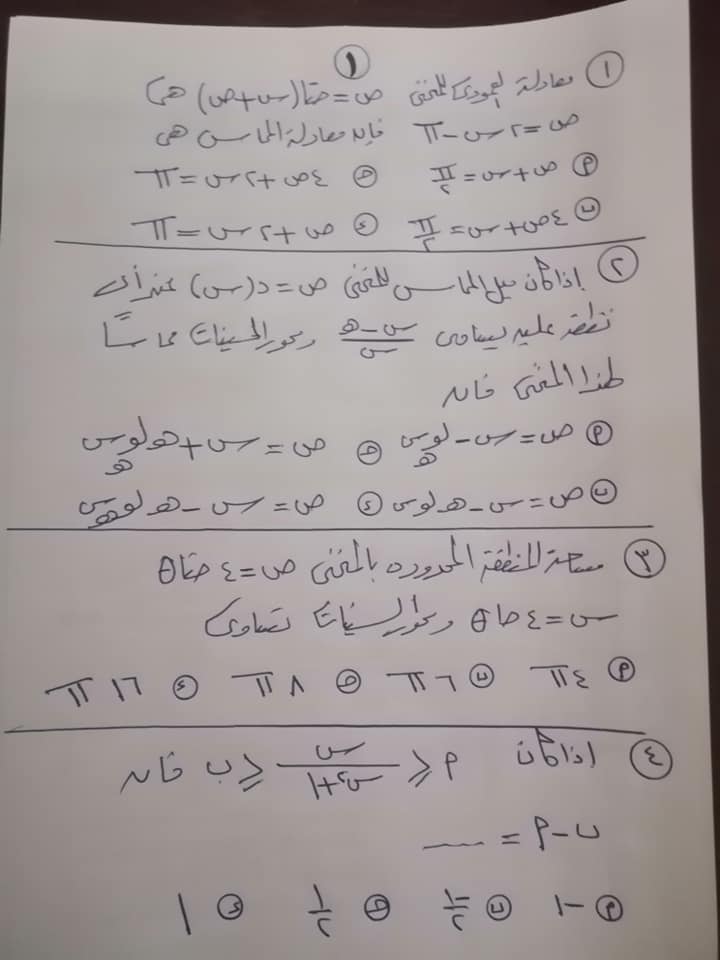 ١
١ معادلة العمودى للمنحنى ص = حتا(س+ص) هى
ص = ٢س - π فإن معادلة المماس هى
P ص + س = π/٢ ح ٤ص + ٢س = π
ب ٤ص + س = π/٢ ء ص + ٢س = π
٢ إذا كان ميل المماس للمنحنى ص = د(س) عند أى
نقطة عليه يساوى س - هـ/س ومحور السينات مماسًا
لهذا المنحنى فإن
P ص = س - لوهـ س ح ص = س + هـ لوهـ س
ب ص = س - هـ لو س ء ص = س - هـ لوهـ س
٣ مساحة المنطقة المحدودة بالمنحنى ص = ٤ حتا θ
س = ٤ حا θ ومحور السينات تساوى
P ٤ π ب ٦ π ح ٨ π ء ١٦ π
٤ إذا كان P ≥ س/س٢+١ ≥ ب فإن
ب - P = ___
P -١ ب -١/٢ ح ١/٢ ء ١